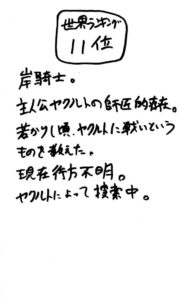 世界ランキング
11位
岸騎士。
主人公ヤクルトの師匠的存在。
若かりし頃、ヤクルトに戦いという
ものを教えた。
現在行方不明。
ヤクルトによって捜索中。